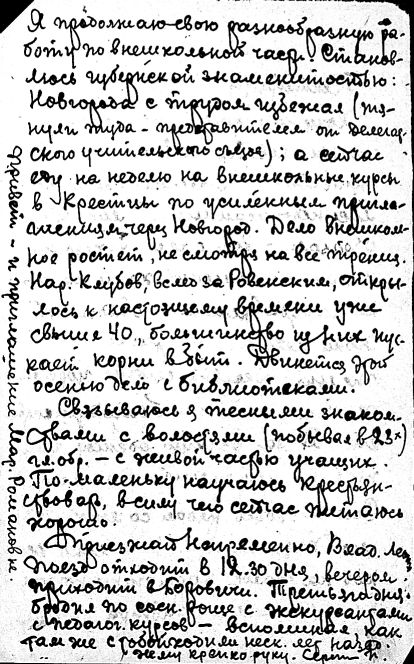 Я продолжаю свою разнообразную ра-
боту по внешкольной части. Станов-
люсь губернской знаменитостью:
Новгорода с трудом избежал (тя-
нули туда - представителем от
ского учительского съезда); а сейчас
еду на неделю на внешкольные курсы
в Крестцы по усиленным пригла-
шениям через Новгород. Дело внешколь-
ное ростет, не смотря на все
Нар. Клубов, вслед за Ровенским, откры-
лось к настоящему времени уже
свыше 40, большинство из них пус-
кает корни в быт. Двинется этой
осенью дело с библиотеками.
Связываюсь я тесными знаком-
ствами с волостями (побывал в 23х)
гл. обр. - с живой частью учащих.
По-маленьку научаюсь крестьян-
ствовать, в силу чего сейчас питаюсь
хорошо.
Приезжай непременно, Влад.
Поезд отходит в 12.30 дня, вечером
приходит в Боровичи. Третьего дня
бродил по сосн. роще с экскурсантами
с педагог. курсов - вспоминал, как
там же с тобой ходили неск. лет назад.
Жму крепко руку.
Привет - и приглашение Мар. Романовне.